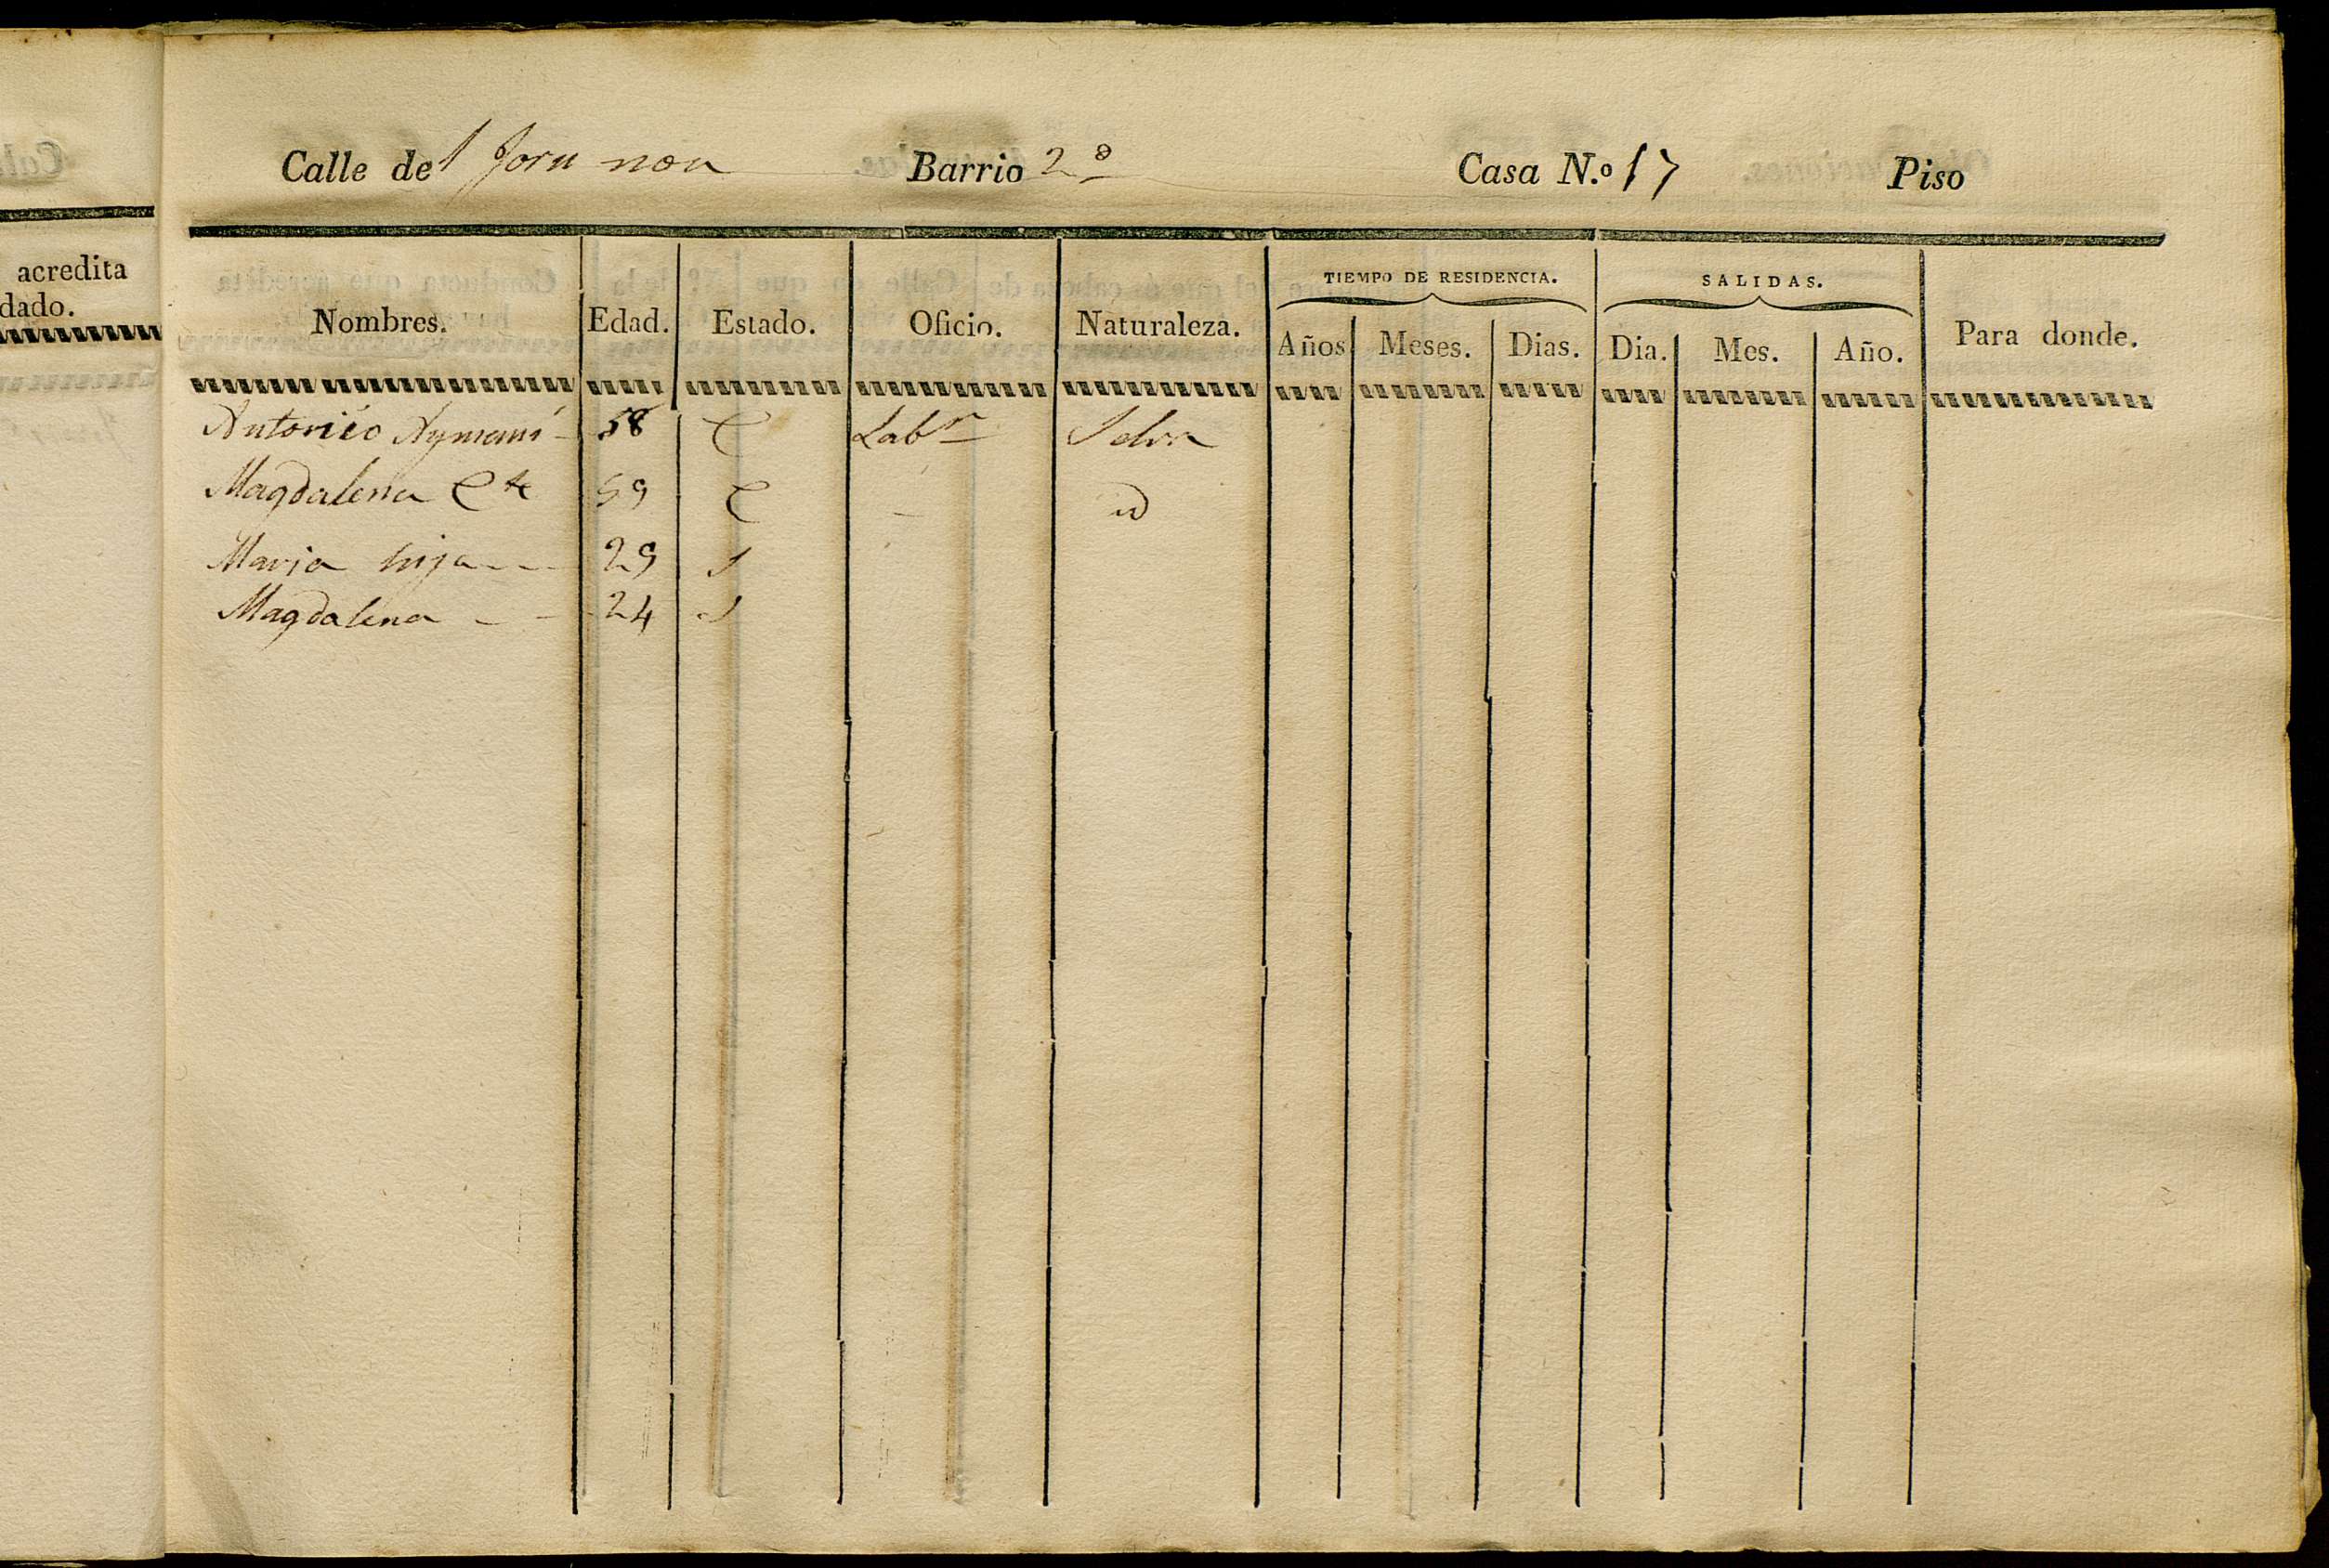 Calle del forn nou Barrio 2º Casa N.º 17 Piso
acredita
dado.
TIEMPO DE RESIDENCIA. SALIDAS.
Nombres. Edad. Estado. Oficio. Naturaleza. Años Meses. Dias. Dia. Mes. Año. Para donde.
Antonio Aymamí 58 C Labr Selva
Magdalena Cte 59 C - id
Maria hija 29 S
Magdalena 24 S